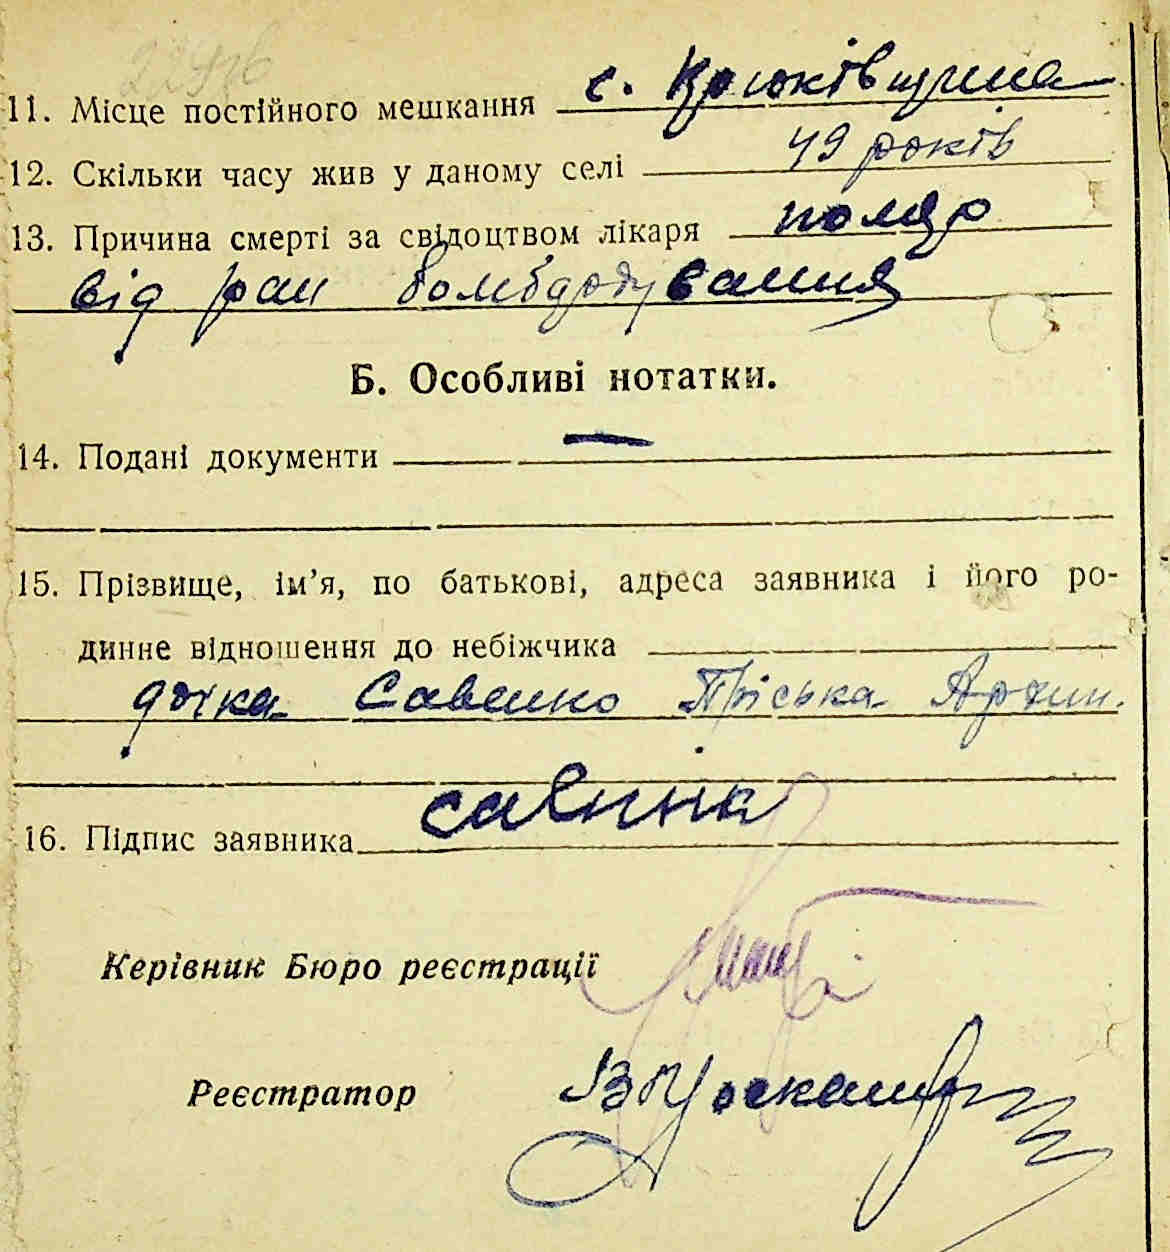 11. Місце постійного мешкання с. Крюківщина
12. Скільки часу жив у даному селі 49 років
13. Причина смерті за свідоцтвом лікаря помер
від ран бомбардування
Б. Особливі нотатки.
14. Подані документи —
15. Прізвище, ім’я, по батькові, адреса заявника і його ро-
динне відношення до небіжчика
дочка Савенко Пріська Архип.
16. Підпис заявника
Керівник Бюро реєстрації
Реєстратор